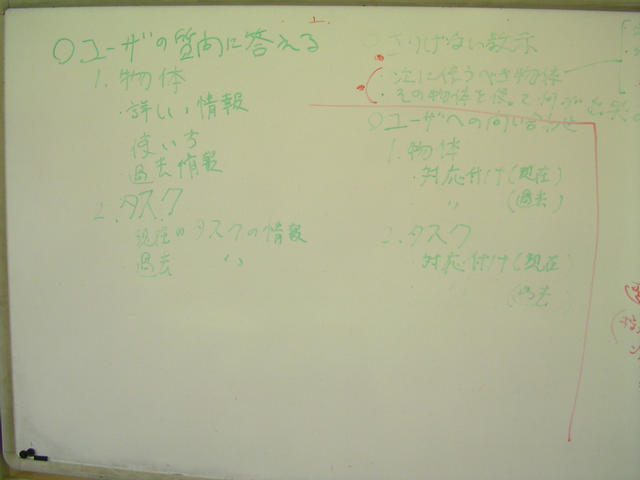 ○ユーザの質問に答える
1.物体
・詳しい情報
使い方
過去情報
2.タスク
現在のタスクの情報
過去 〃
○さりげない教示
・次に使うべき物体
・その物体を使って何が
○ユーザへの問い合わせ
1.物体
・対応付け(現在)
〃 (過去)
2.タスク
対応付け(現在)
(過去)